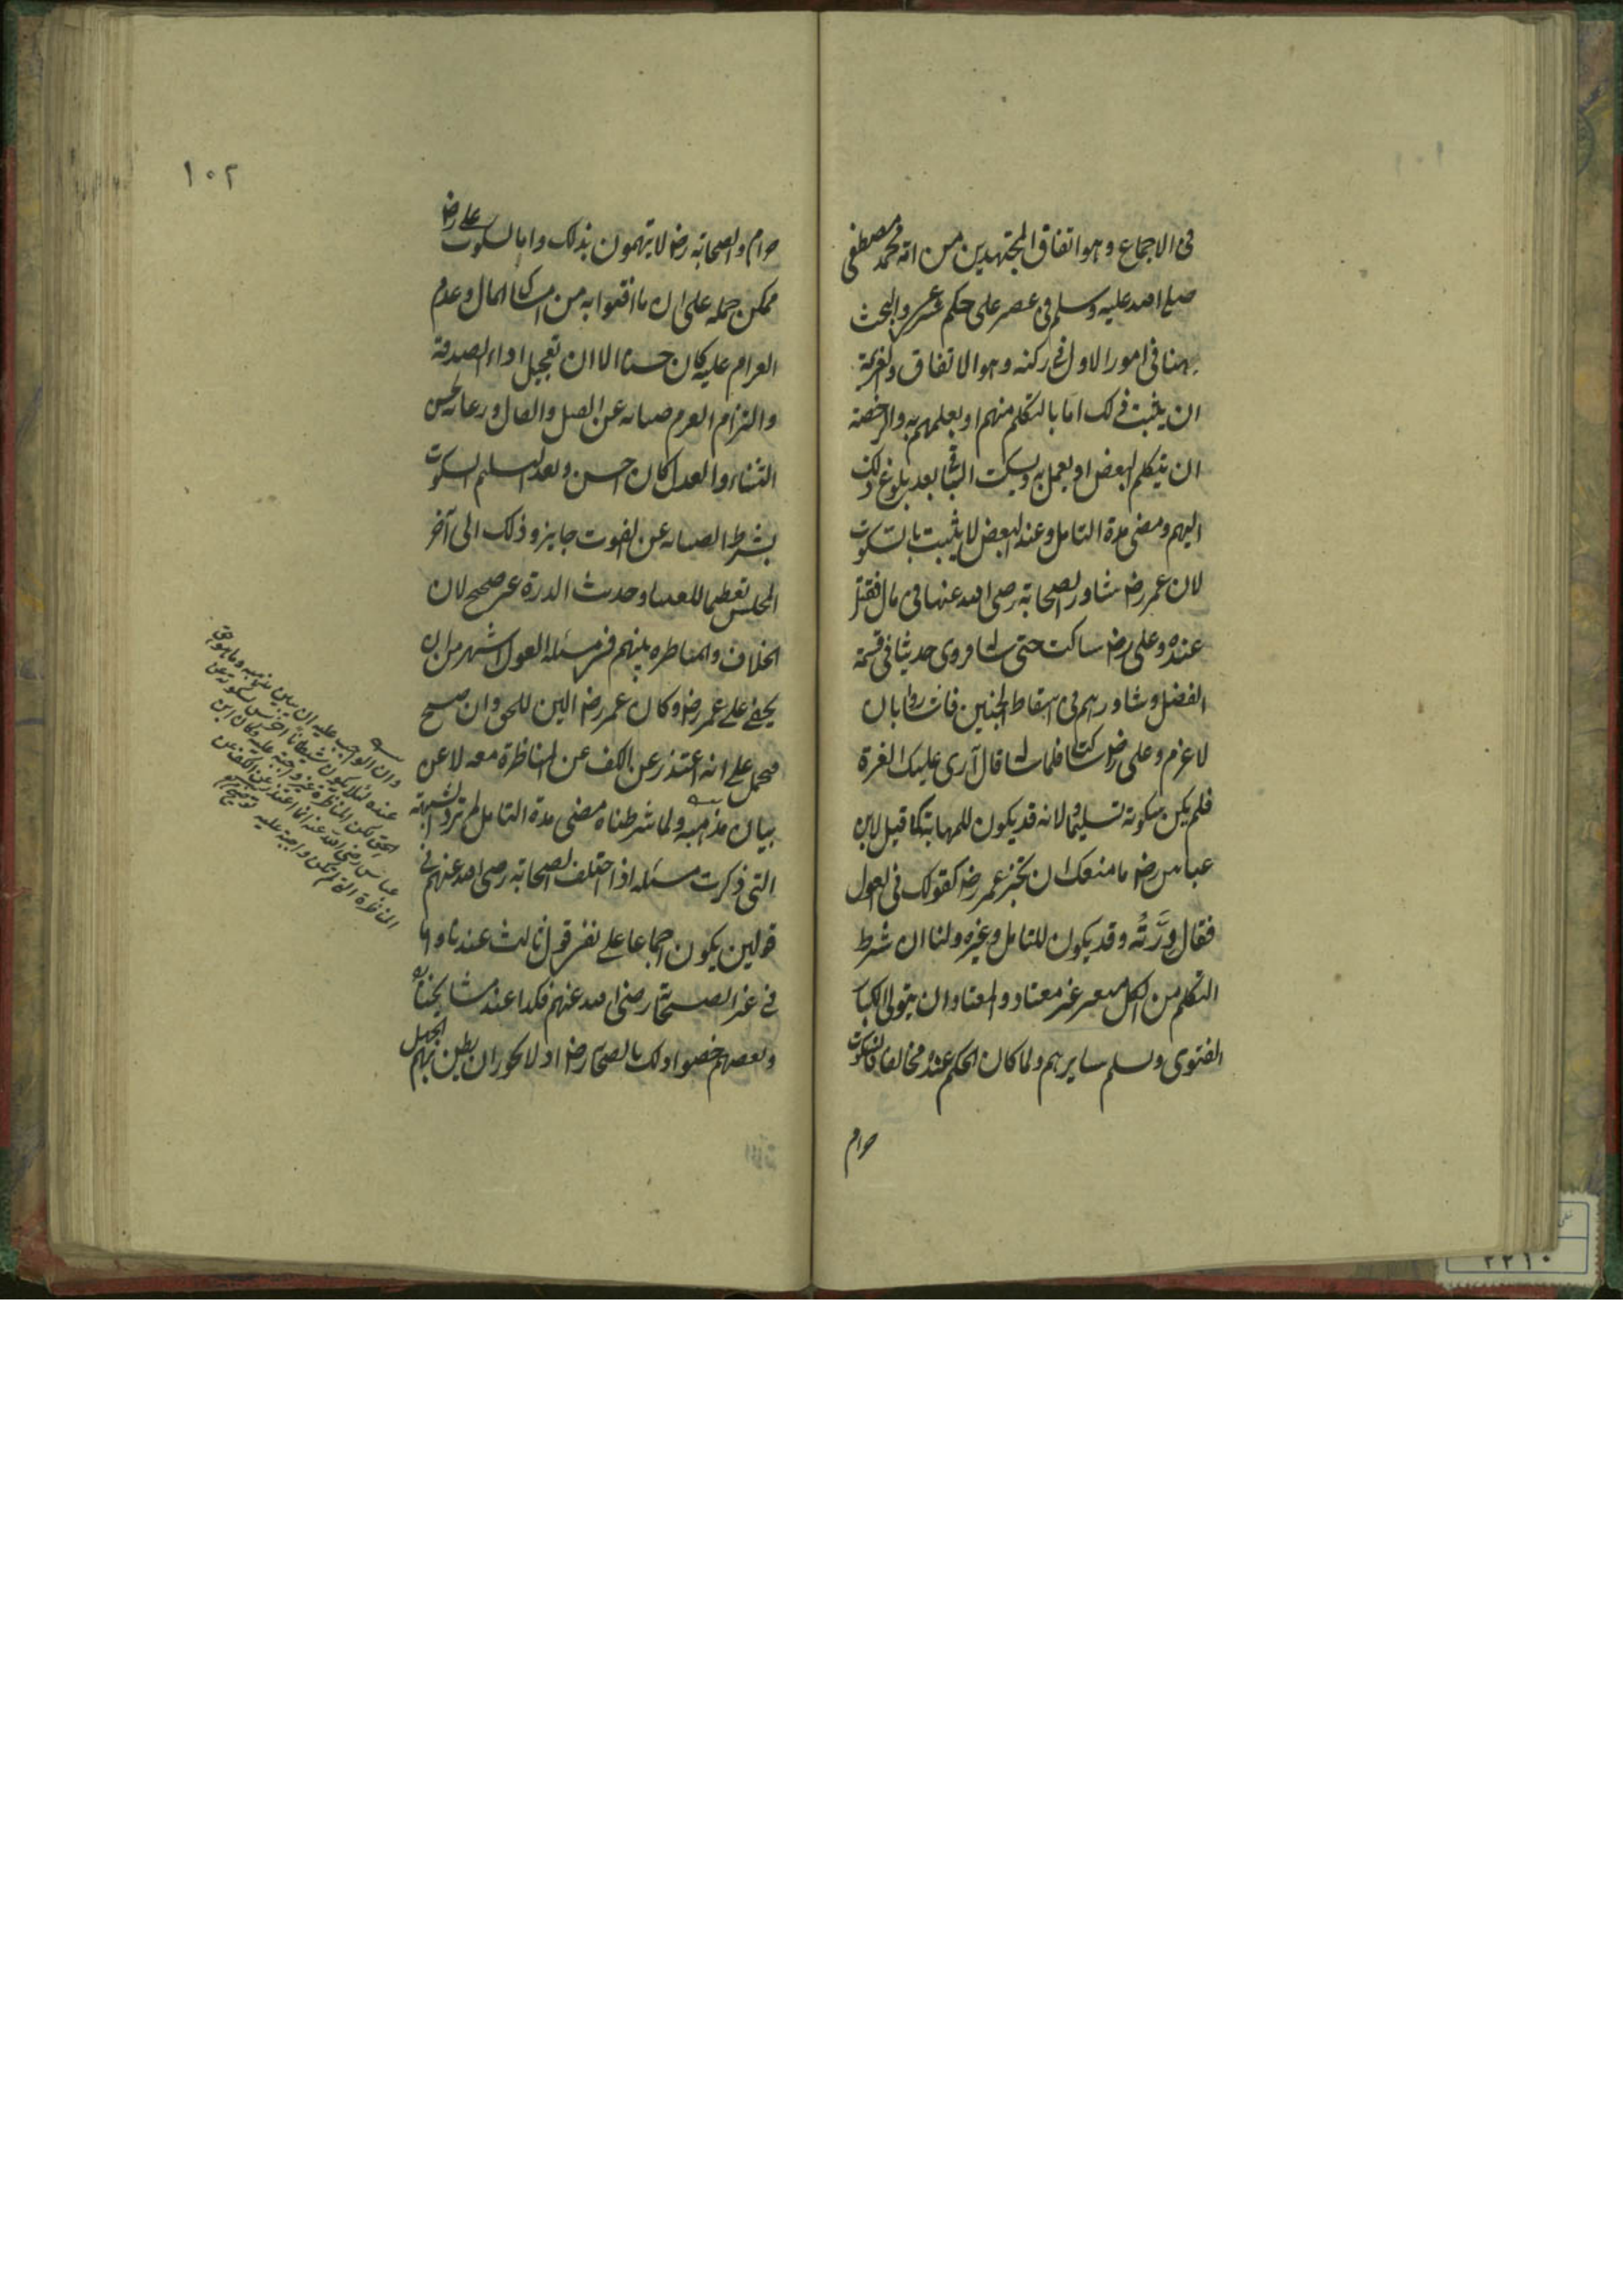 ١٠١
فى الاجماع وهو اتفاق المجتهدين من امة محمد مصطفى
صلى الله عليه وسلم فى عصر على حكم شرعى والبحث
ههنا فى امور الاول فى ركنه وهو الاتفاق والعزيمة
ان يثبت ذلك اما بالتكلم منهم او بعلمهم به والرخصة
ان يتكلم البعض او يعمل به ويسكت الباقى بعد بلوغ ذلك
اليهم ومضى مدة التامل وعند البعض لا يثبت بالسكوت
لان عمر رضـ شاور الصحابة رضى الله عنها فى مال فضل
عنده وعلى رضـ ساكت حتى سأله فروى حديثا فى قسمة
الفضل وشاورهم فى اسقاط الجنين فاشاروا بان
لا غرم وعلى رضـ ساكت فلما سأله قال آرى عليك الغرة
فلم يكن سكوته تسليما ولانه قد يكون للمهابة كما قيل لابن
عباس رضـ ما منعك ان تخبر عمر رضـ كقولك فى العول
فقال دِرَّتُه وقد يكون للتامل وغيره ولنا ان شرط
التكلم من الكل متعسر غير معتاد والمعتاد ان يتولى الكبار
الفتوى ويسلم سايرهم ولما كان الحكم عنده مخالفا فالسكوت
حرام
١٠٢
حرام والصحابة رضـ لا يتهمون بذلك واما سكوت على رضـ
ممكن حمله على ان ما افتوا به من امساك المال وعدم
الغرام عليه كان حسنا الا ان تعجيل اداء الصدقة
والتزام الغرم صيانة عن القيل والقال ورعاية لحسن
الثناء والعدل كان احسن وبعد التسليم السكوت
بشرط الصيانة عن الفوت جايز وذلك الى آخر
المجلس تعظيما للفتيا وحديث الدرة غير صحيح لان
الخلاف والمناظرة بينهم فى مسئلة العول اشهر من ان
يخفى على عمر رضـ وكان عمر رضـ الين للحق وان صح
فمحمل على انه اعتذر عن الكف عن المناظرة معه لا عن
بيان مذهبه ولما شرطنا مضى مدة التامل لم ترد الشبهة
التى ذكرت مسئلة اذا اختلف الصحابة رضى الله عنهم فى
قولين يكون اجماعا على نفى قول ثالث عندنا واما
فى غير الصحابة رضى الله عنهم فكذا عند مشايخنا
وبعضهم خصوا ذلك بالصحابة رضـ اذ لا يجوز ان يظن بهم الجهل
وان الواجب عليه ان يبين مذهبه وما هو حق
عنده لئلا يكون شيطانا اخرس لسكوته عن
الحق لكن المناظرة غير واجبة عليه وكان ابن
عباس رضى الله عنه انما اعتذر عن الكف عن
المناظرة التى لم تكن واجبة عليه توضيح
٢٢١٠